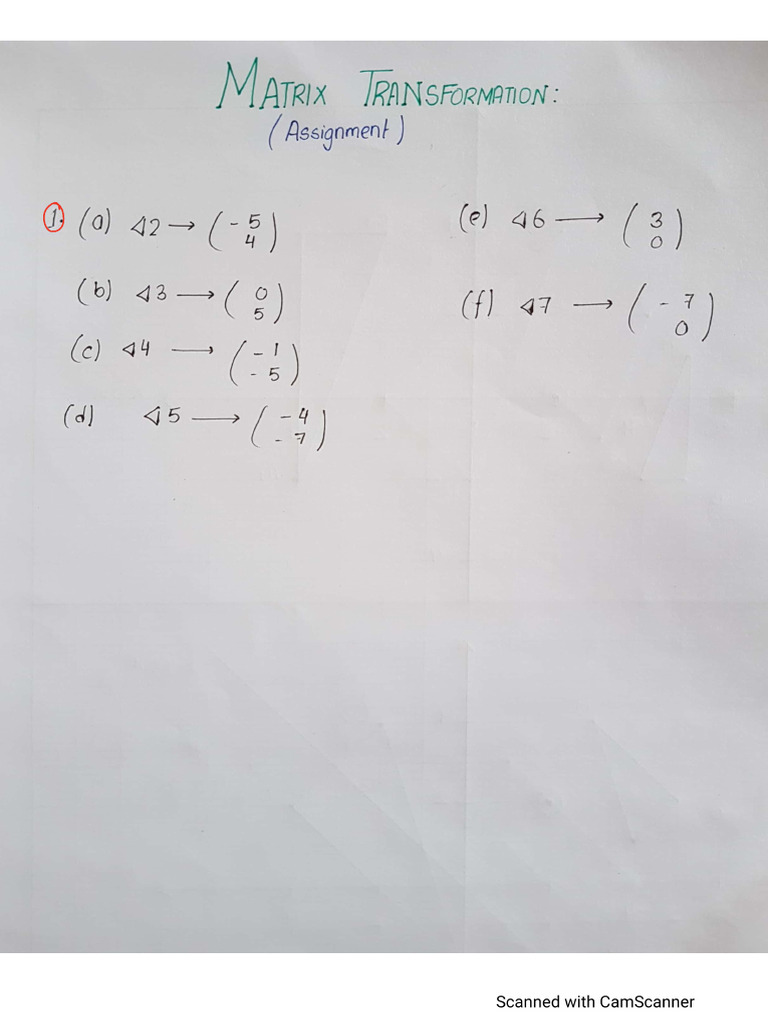 MATRIX TRANSFORMATION:
(Assignment)
1. (a) ◁2 → (-5 4)
(b) ◁3 → (0 5)
(c) ◁4 → (-1 -5)
(d) ◁5 → (-4 -7)
(e) ◁6 → (3 0)
(f) ◁7 → (-7 0)
Scanned with CamScanner